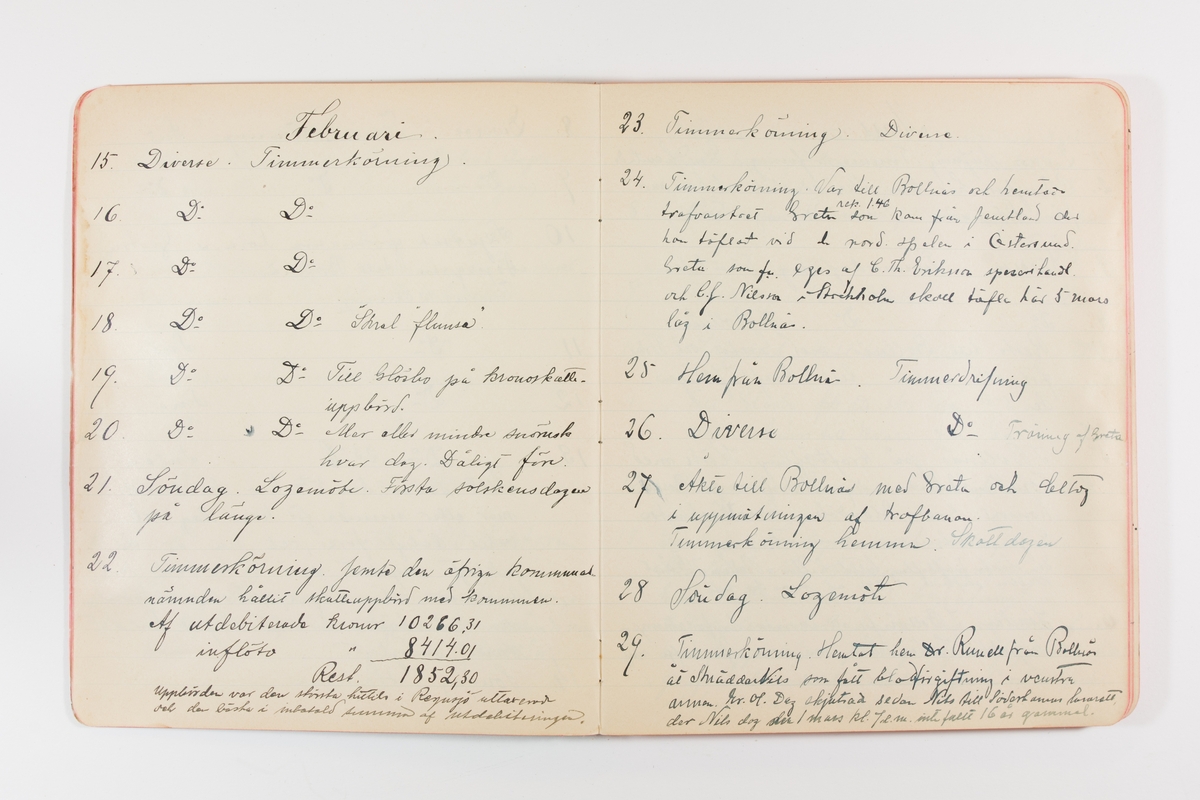 Februari.
15. Diverse. Timmerkörning.
16. Do Do
17. Do Do
18. Do Do Skral "flunsa".
19. Do Do Till Glösbo på kronoskatte-
uppbörd.
20. Do Do Mer eller mindre snörusk
hvar dag. Dåligt före.
21. Söndag. Logemöte. Första solskensdagen
på länge.
22. Timmerkörning. Jemte den öfriga kommunal-
nämnden hållit skatteuppbörd med kommunen.
Af utdebiterade kronor 10266,31
inflöto " 8414.01
Rest. 1852,30
Uppbörden var den största hittils i Rengsjö utlaverad
och den bästa i inbetald summan af utdebiteringen.
23. Timmerkörning. Diverse.
24. Timmerkörning. Var till Bollnäs och hemtat
trafvarstoet Greta rek. 1.46 som kom från Jemtland der
hon täflat vid nord. spelen i Östersund.
Greta som eges af C. Th. Erikson spezerihandl.
och C.J. Nilsson i Stockholm skall täfla här 5 mars
låg i Bollnäs.
25 Hem från Bollnäs. Timmerdrifning
26. Diverse Do Träning af Greta
27 Åkte till Bollnäs med Greta och deltog
i uppmätningen af trafbanan.
Timmerkörning hemma. Skottdagen
28 Söndag. Logemöte
29. Timmerkörning. Hemtat hem Dr. Runell från Bollnäs
åt Skräddar Nils som fått blodförgiftning i venstra
armen. Gr. Ol. Dag skjutsad sedan Nils till Söderhamns lasarett
der Nils dog den 1 mars kl. 7 e.m. inte fullt 16 år gammal.